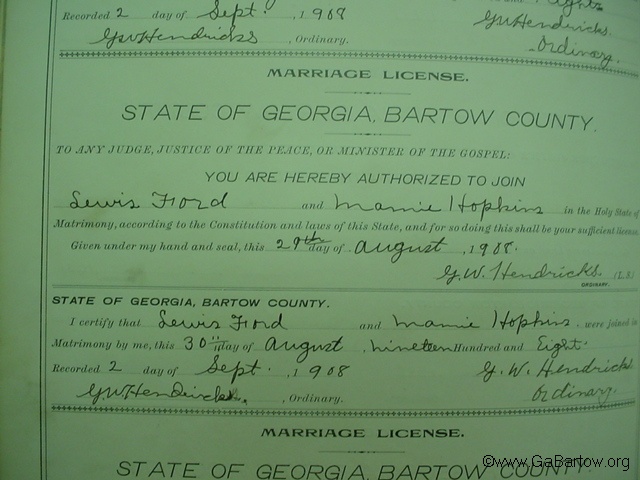 Eight
Recorded 2 day of Sept. , 1908 G.W. Hendricks.
G.W. Hendricks , Ordinary. Ordinary.
MARRIAGE LICENSE.
STATE OF GEORGIA, BARTOW COUNTY.
TO ANY JUDGE, JUSTICE OF THE PEACE, OR MINISTER OF THE GOSPEL:
YOU ARE HEREBY AUTHORIZED TO JOIN
Lewis Ford and Mamie Hopkins in the Holy State of
Matrimony, according to the Constitution and laws of this State, and for so doing this shall be your sufficient license
Given under my hand and seal, this 29th day of August , 1908.
G.W. Hendricks. (L.S.)
ORDINARY.
STATE OF GEORGIA, BARTOW COUNTY.
I certify that Lewis Ford and Mamie Hopkins. were joined in
Matrimony by me, this 30th day of August , nineteen Hundred and Eight.
Recorded 2 day of Sept. , 1908 G. W. Hendricks
G.W. Hendricks. , Ordinary. Ordinary.
MARRIAGE LICENSE.
STATE OF GEORGIA, BARTOW COUNTY.
©www.GaBartow.org